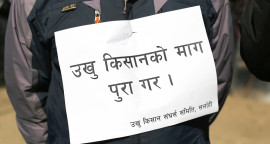 उखु किसानको माग
पुरा गर ।
उखु किसान संघर्ष समिति, सर्लाही